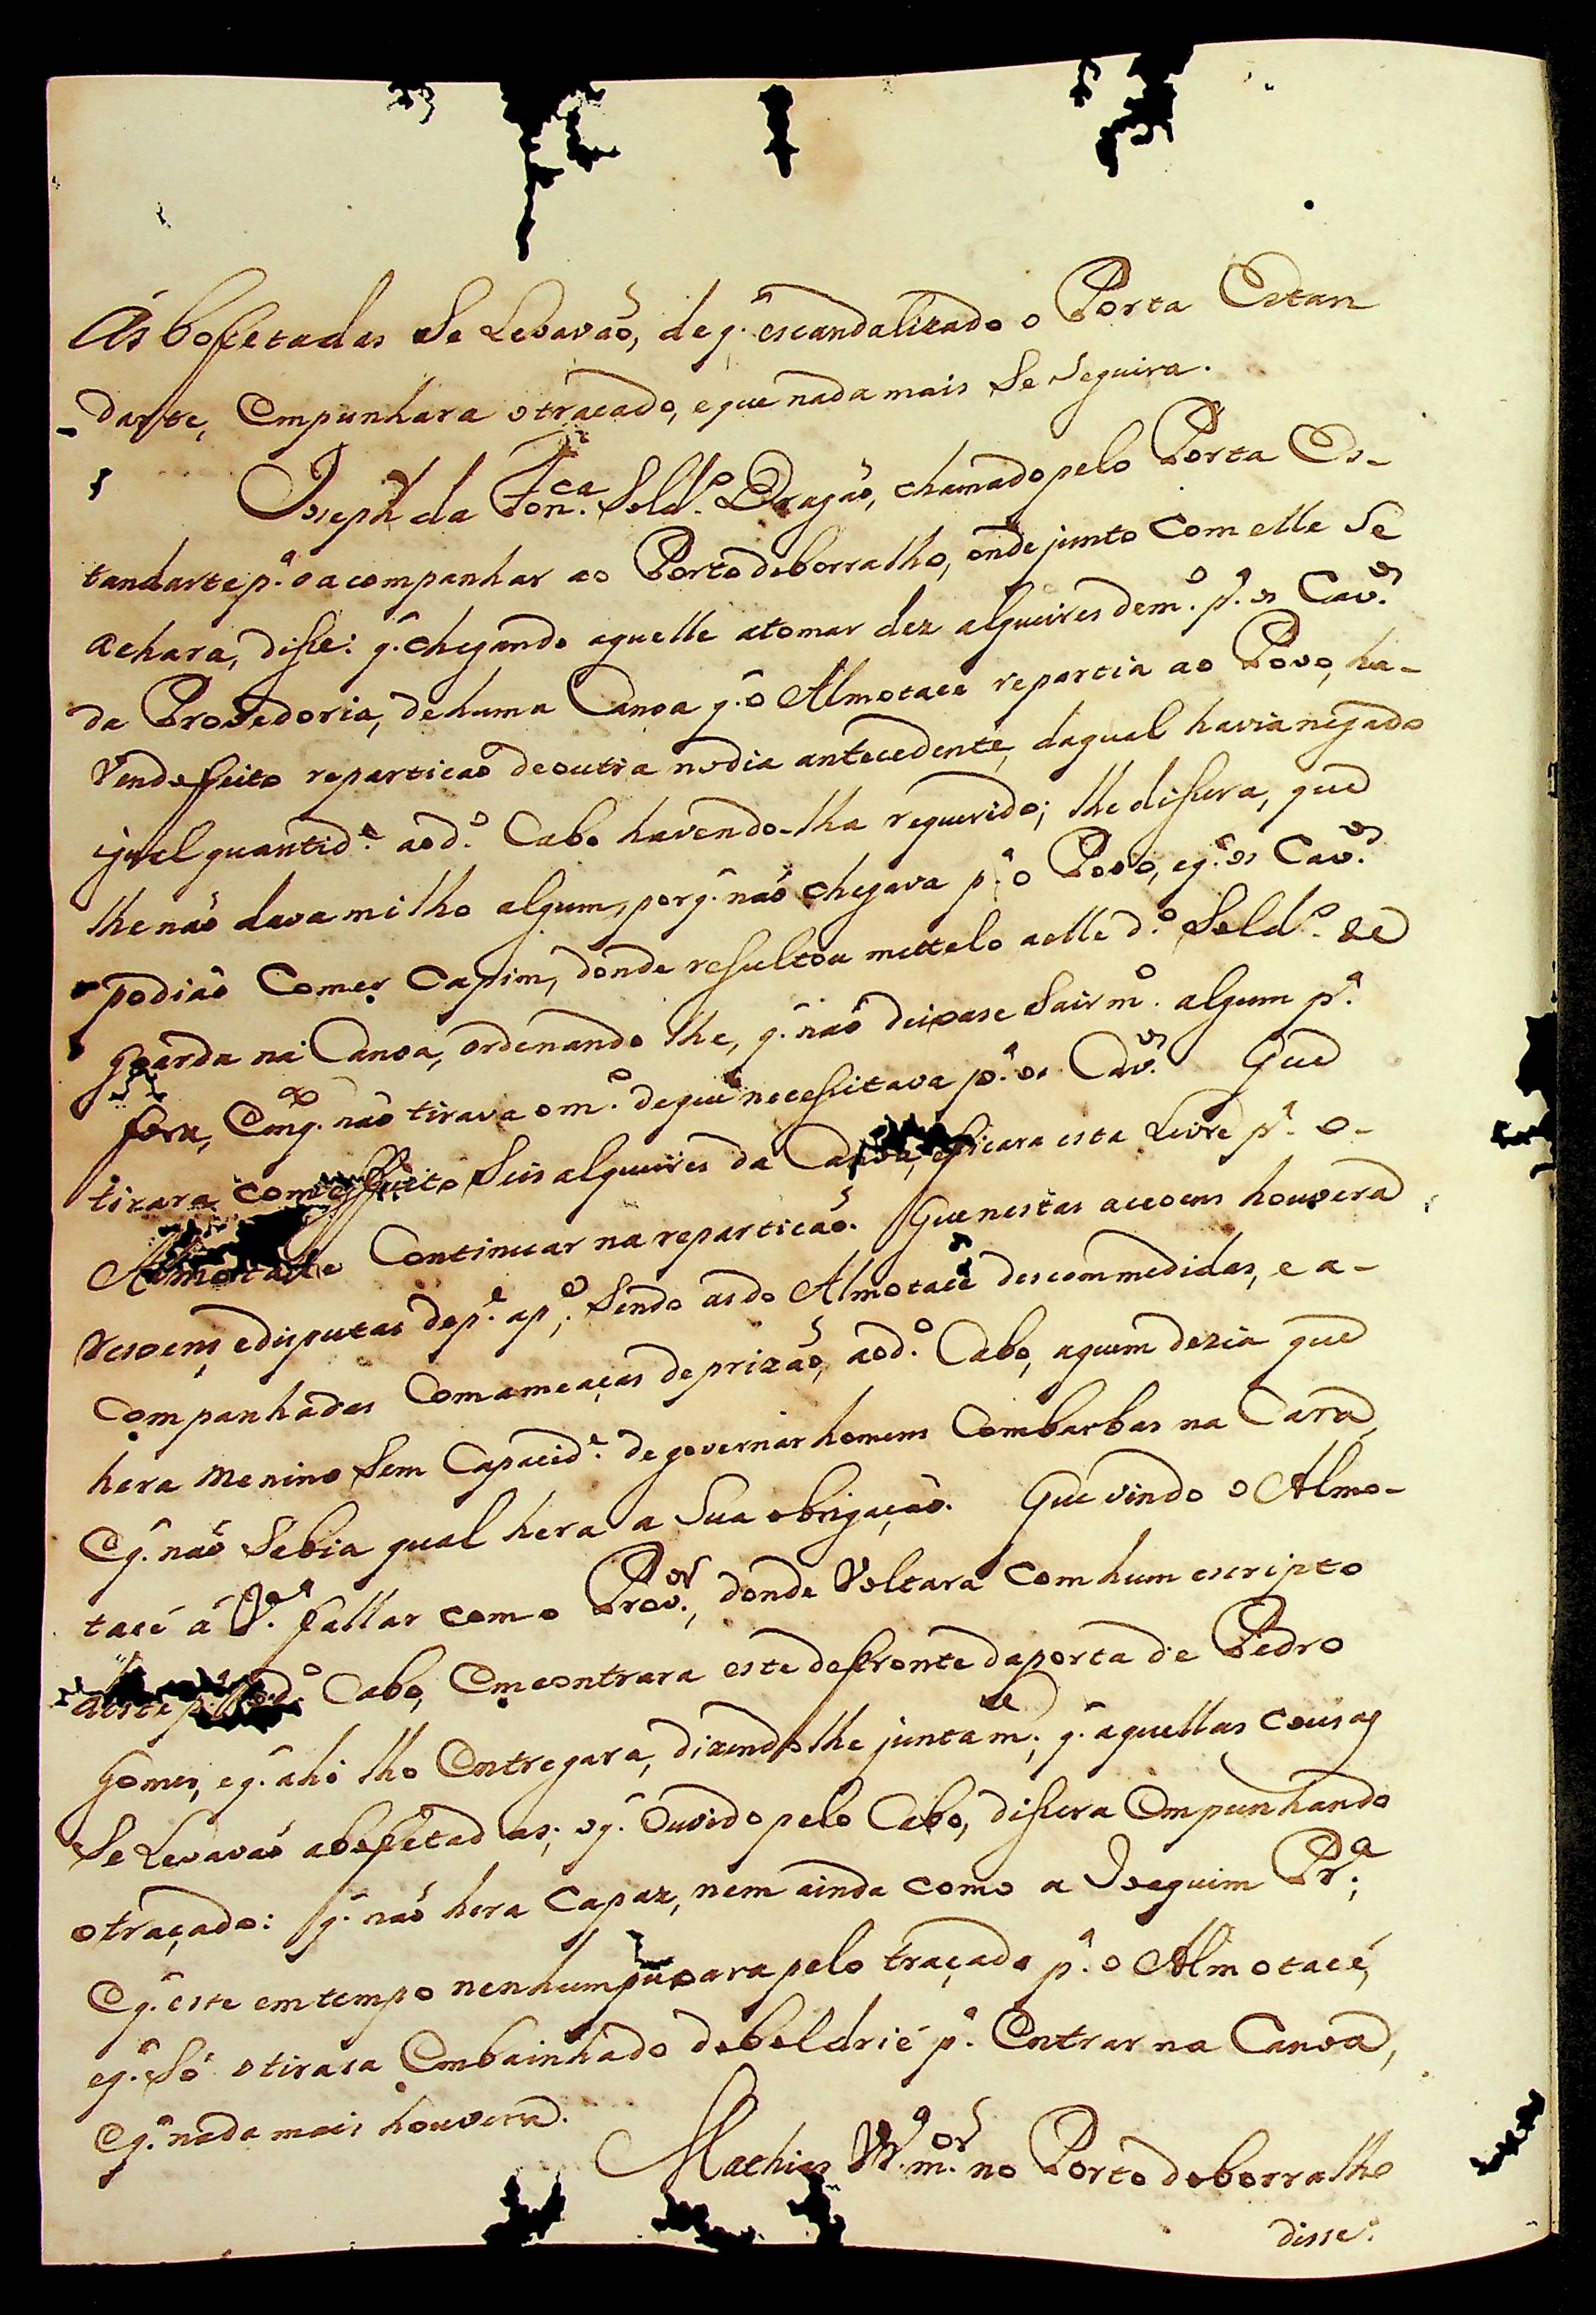 Ás bofetadas Se Levavaõ, de q̃. escandalizado o Porta Estan
-darte, Empunhara o traçado, e que nada mais Se Seguira.
Joseph da Fon.ca Sold.º Dragaõ, chamado pelo Porta Es-
tandarte p.ª o acompanhar ao Porto do borralho, onde junto Com elle Se
achara, disse: q̃. chegando aquelle a tomar dez alqueires de m.º p.ª os Cav.os
da Provedoria, de huma Canoa q̃. o Almotace repartia ao Povo, ha-
vendo feito repartiçaõ de outra no dia antecedente, da qual havia negado
igual quantid.e ao d.º Cabo havendo-lha requerido; lhe dissera, que
lhe naõ dava milho algum, porq̃. naõ chegava p.ª o Povo, e q̃. os Cav.os
podiaõ Comer Capim, donde resultou mettelo a elle d.º Sold.º de
guarda na Canoa, ordenando lhe, q̃. naõ deixase Sair m.º algum p.ª
fora, Emq.to naõ tirava o m.º de que necessitava p.ª os Cav.os Que
tirara com effeito Seis alqueires da Canoa, e ficara esta Livre p.ª o-
Almotace Continuar na repartiçaõ. Que nestas accoens houvera
rezoens, e disputas de p.e a p.e, Sendo as do Almotacé descommedidas, e a-
companhadas Com ameaças de prizaõ, ao d.º Cabo, a quem dezia que
hera menino Sem Capacid.e de governar homens Com barbas na Cara,
E q̃. naõ Sabia qual hera a Sua obrigaçaõ. Que vindo o Almo-
tacé á V.ª fallar com o Prov.or, donde Voltara com hum escripto
deste p.ª o d.º Cabo, Emcontrara este defronte da porta de Pedro
Gomes, e q̃. ahi lho Entregara, dizendo lhe juntam.te, q̃. aquellas cousas
Se Levavaõ a bofetadas; o q̃. Ouvido pelo Cabo, dissera Empunhando
o traçado: q̃. naõ hera Capaz, nem ainda como a Joaquim Pr.ª;
E q̃. este em tempo nenhum puxara pelo traçado p.ª o Almotacé,
e q̃. Só o tirara Embainhado do boldrié p.ª Entrar na Canoa,
E q̃. nada mais houvera.
Mathias m.or no Porto do borralho
disse: